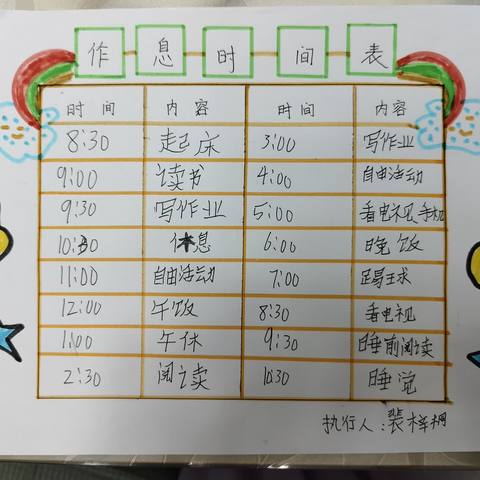 作息时间表
时间 内容 时间 内容
8:30 起床 3:00 写作业
9:00 读书 4:00 自由活动
9:30 写作业 5:00 看电视、手机
10:30 休息 6:00 晚饭
11:00 自由活动 7:00 踢球
12:00 午饭 8:30 看电视
1:00 午休 9:30 睡前阅读
2:30 阅读 10:30 睡觉
执行人:裴梓